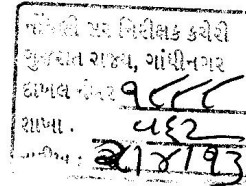 નોંધણી સર નિરીક્ષક કચેરી
ગુજરાત રાજ્ય, ગાંધીનગર
દાખલ નંબર ૧૮૮૮
શાખા . વહટ
તારીખ : ૨૫/૪/૧૩